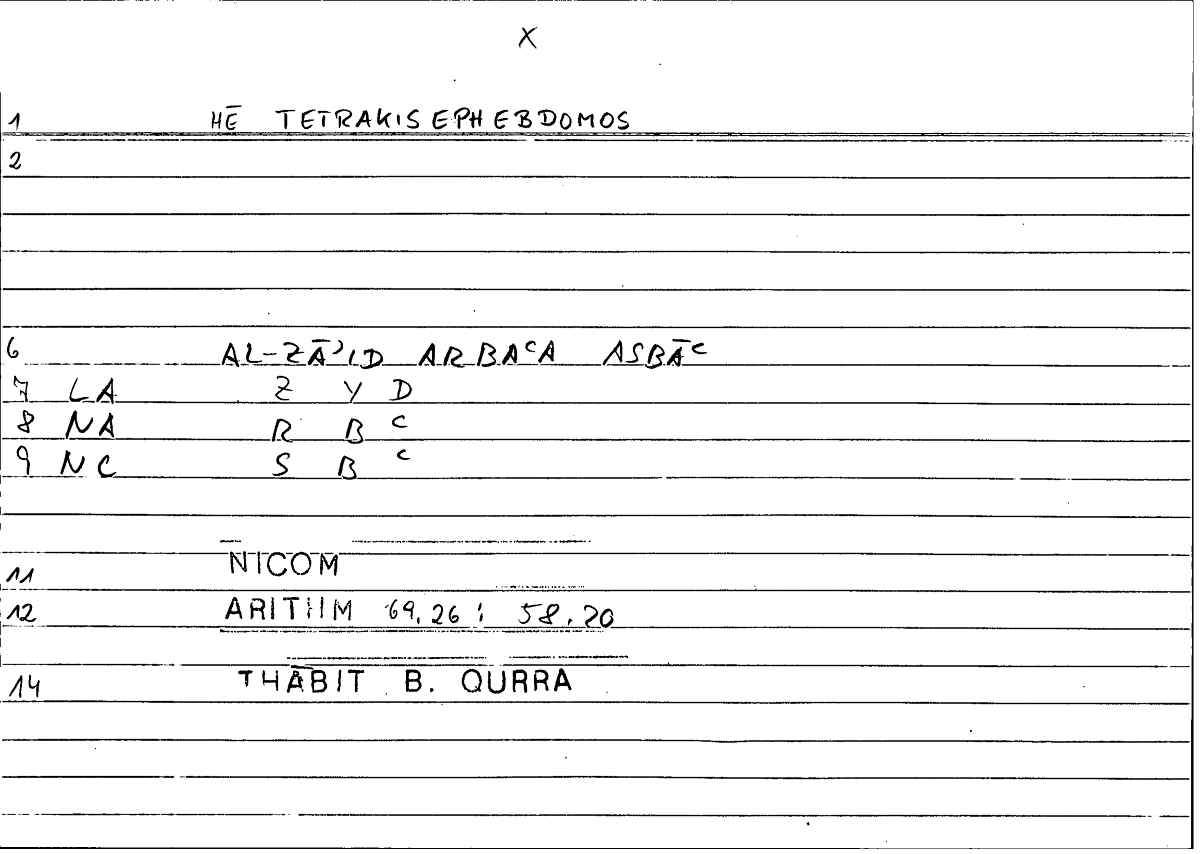 X
1 HĒ TETRAKISEPHEBDOMOS
2
6 AL-ZĀʾID ARBAᶜA ASBĀᶜ
7 LA Z Y D
8 NA R B ᶜ
9 NC S B ᶜ
11 NICOM
12 ARITHM 69,26 ; 58,20
14 THĀBIT B. QURRA